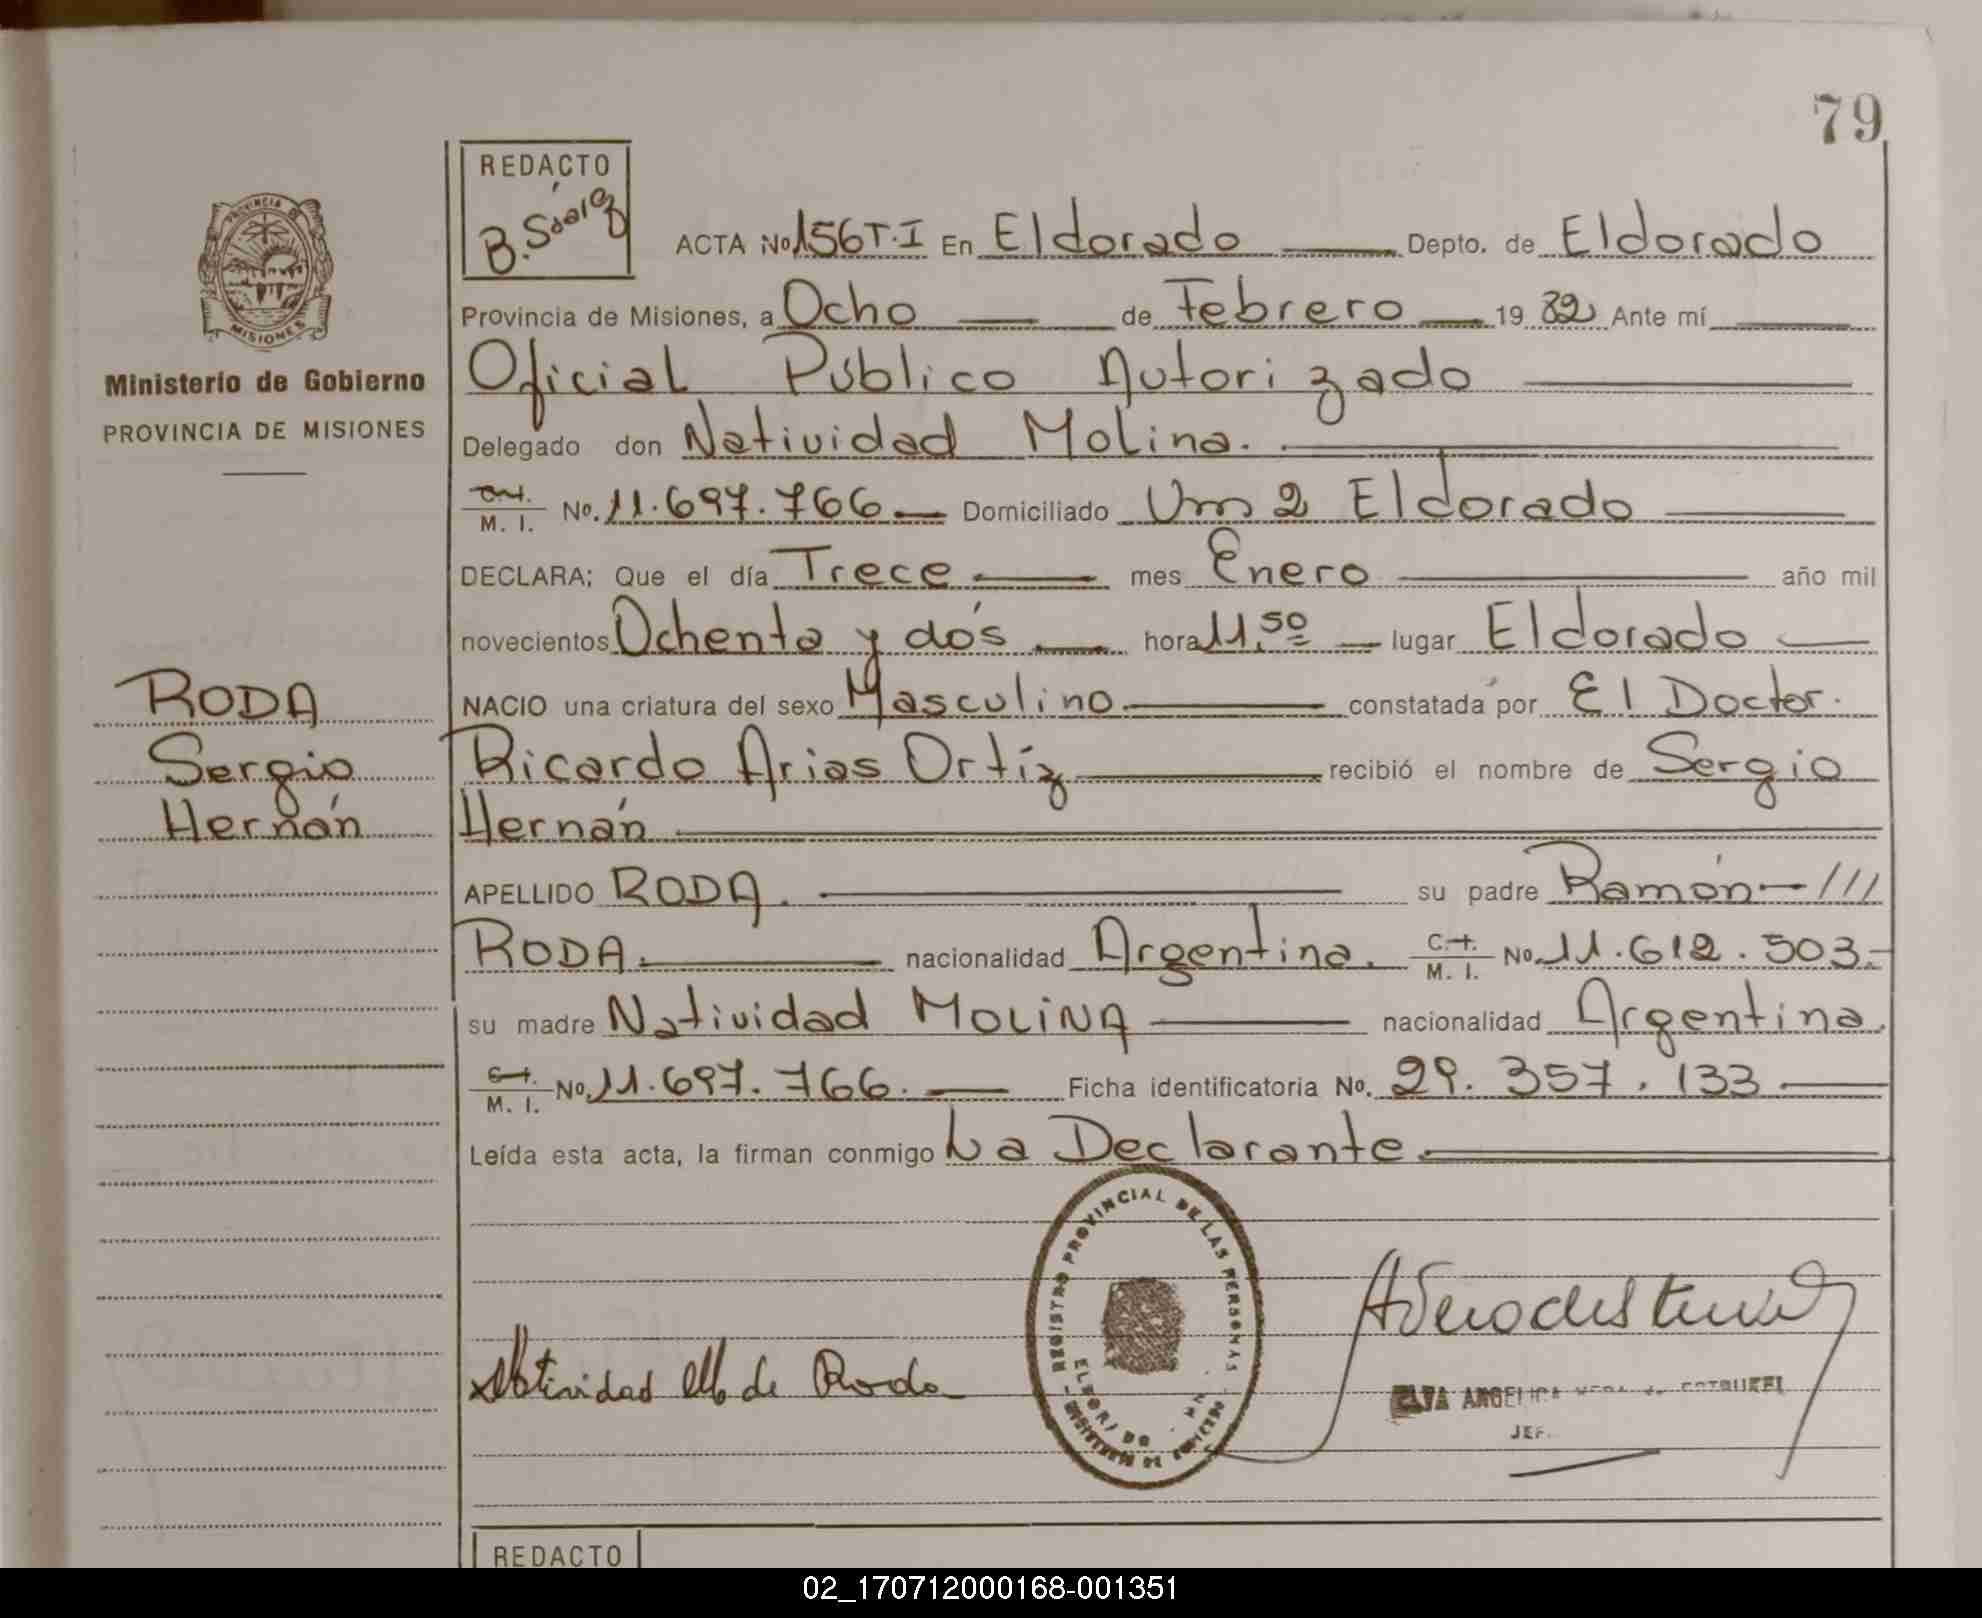 79
REDACTO
B. Sáiz
ACTA No 156 T.I En Eldorado Depto. de Eldorado
Provincia de Misiones, a Ocho de Febrero 19 82 Ante mí
Oficial Público Autorizado
Ministerio de Gobierno
PROVINCIA DE MISIONES
Delegado don Natividad Molina.
M. I. No. 11.697.766 Domiciliado Km 2 Eldorado
DECLARA; Que el día Trece mes Enero año mil
novecientos Ochenta y dós hora 11,50 lugar Eldorado
RODA
Sergio
Hernán
NACIO una criatura del sexo Masculino constatada por El Doctor.
Ricardo Arias Ortíz recibió el nombre de Sergio
Hernán
APELLIDO RODA. su padre Ramón ///
RODA. nacionalidad Argentina. C.I. M. I. No. 11.612.503.
su madre Natividad MOLINA nacionalidad Argentina.
C.I. M. I. No. 11.697.766. Ficha identificatoria No. 29.357.133
Leída esta acta, la firman conmigo La Declarante.
PROVINCIA DE
MISIONES
REGISTRO PROVINCIAL DE LAS PERSONAS
ELDORADO
Natividad M de Roda
ANGELICA
JEF.
REDACTO
02_170712000168-001351